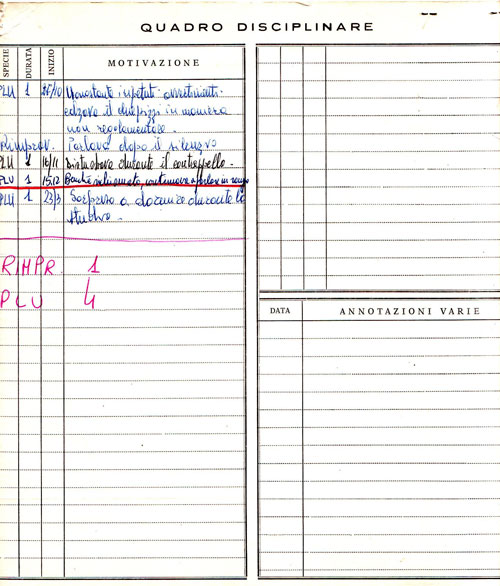 QUADRO DISCIPLINARE
SPECIE DURATA INIZIO MOTIVAZIONE
PLU 1 27/10 Nonostante ripetuti avvertimenti
il in maniera
non regolamentare.
Rimprov. Parlava dopo il silenzio
PLU 1 16/11 durante il contrappello.
PLU 1 15.12 Benché richiamato, continuava a parlare in
PLU 1 23/3 Sorpreso a dormire durante lo
studio.
RIMPR. 1
PLU 4
DATA ANNOTAZIONI VARIE